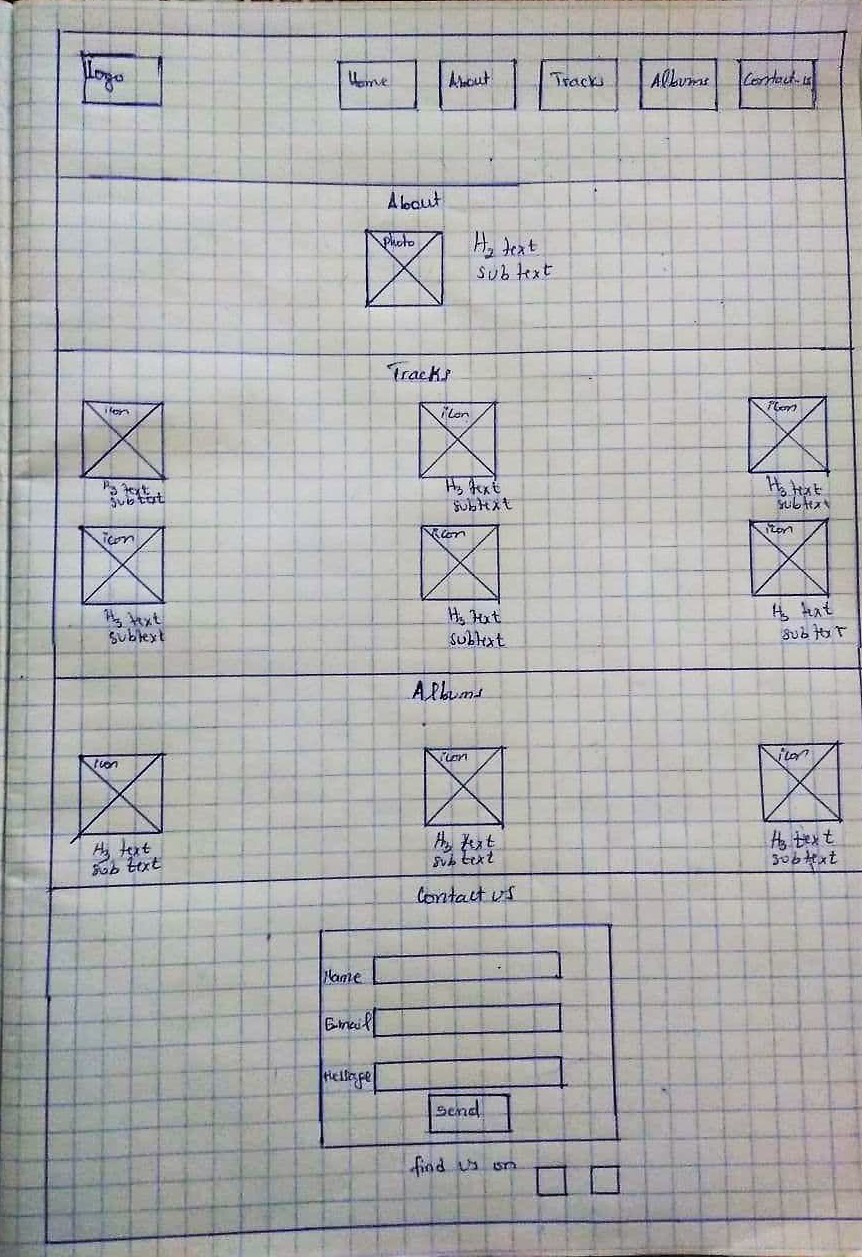 Logo
Home
About
Tracks
Albums
Contact-us
About
photo
H2 text
sub text
Tracks
icon
icon
icon
H3 text
subtext
H3 text
subtext
H3 text
subtext
icon
icon
icon
H3 text
subtext
H3 text
subtext
H3 text
subtext
Albums
icon
icon
icon
H3 text
sub text
H3 text
subtext
H3 text
subtext
Contact us
Name
E-mail
Message
Send
find us on